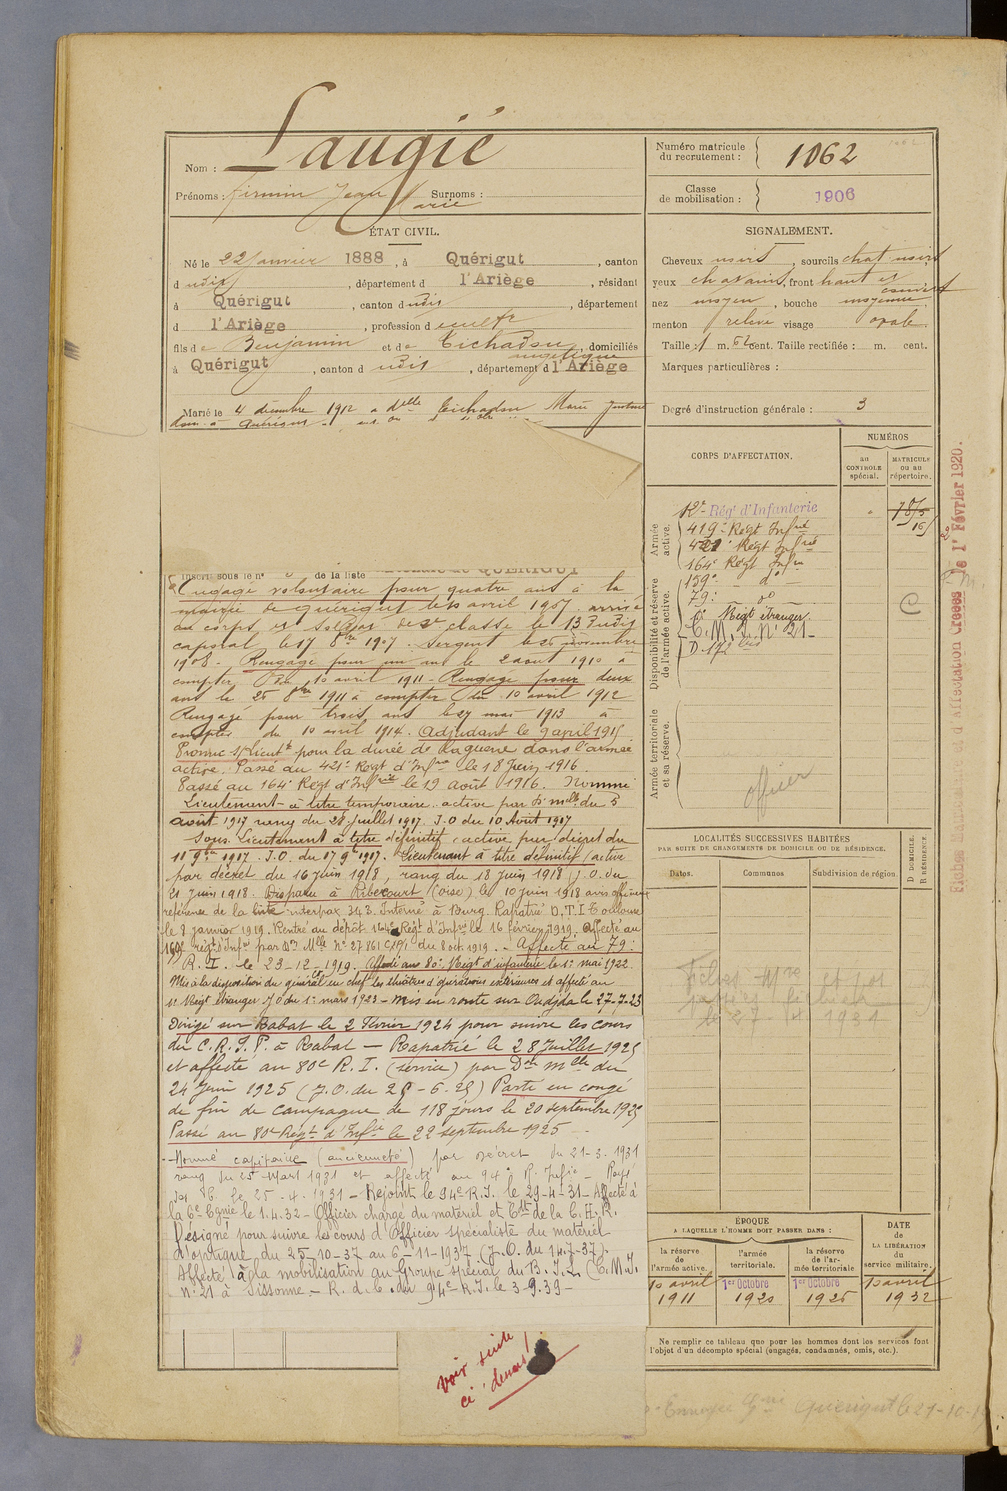 Nom : Laugié
Prénoms : Firmin Jean Marie Surnoms :
Numéro matricule du recrutement : 1062
Classe de mobilisation : 1906
ÉTAT CIVIL.
Né le 22 Janvier 1888, à Quérigut, canton
dudit, département d l'Ariège, résidant
à Quérigut, canton dudit, département
d l'Ariège, profession d cultr
fils de Benjamin et de Tichadou angélique, domiciliés
à Quérigut, canton dudit, département d l'Ariège
Marié le 4 décembre 1912 a delle Tichadou Marie Justine
dom. à Quérigut
SIGNALEMENT.
Cheveux noirs, sourcils chat noirs
yeux chatains, front haut et couvert
nez moyen, bouche moyenne
menton relevé visage ovale
Taille : 1 m. 62 cent. Taille rectifiée : m. cent.
Marques particulières :
Degré d'instruction générale : 3
CORPS D'AFFECTATION.
NUMÉROS
au CONTROLE spécial.
MATRICULE ou au répertoire.
Armée active.
Disponibilité et réserve de l'armée active.
Armée territoriale et sa réserve.
Régt d'Infanterie
419e Régt Infrie
421e Régt Infrie
164e Régt Infie
159e do
79e do
1er Régt étranger
C. M. I. No 21
D. 172 bis
officier
C
Fiches Matricule et d'Affectation Créées le 1er Février 1920.
Inscrit sous le no de la liste de QUERIGUT
Engagé volontaire pour quatre ans à la
mairie de Quérigut le 10 avril 1907. arrivé
au corps et soldat de 2e classe le 13 dudit
caporal le 17 8bre 1907. Sergent le 26 novembre
1908. Rengagé pour un an le 2 aout 1910 à
compter du 10 avril 1911 - Rengagé pour deux
ans le 25 8bre 1911 à compter du 10 avril 1912
Rengagé pour trois ans le 27 mai 1913 à
compter du 10 avril 1914. Adjudant le 9 april 1915
Promu s/Lieutt pour la durée de la guerre dans l'armée
active. Passé au 421e Régt d'Infrie le 18 Juin 1916.
Passé au 164e Régt d'Infrie le 19 août 1916. Nommé
Lieutenant à titre temporaire. active par Don mlle du 5
août 1917 rang du 28 Juillet 1917. J.O du 10 Août 1917
Sous-Lieutenant à titre définitif, active par décret du
11 9bre 1917. J.O. du 17 9bre 1917. Lieutenant à titre définitif/active
par décret du 16 juin 1918, rang du 18 juin 1918, J.O. du
21 juin 1918. Disparu à Ribécourt (Oise) le 10 juin 1918 avis officieux
référence de la liste 343. Interné à Burg. Rapatrié D.T.I Toulouse
le 8 janvier 1919. Rentré au dépôt 164e Régt d'Infrie le 16 février 1919. Affecté au
159e régt d'Infie par Don Mlle No 27861 C 1/1 du 8 oct. 1919. - Affecté au 79e
R.I. le 23-12-1919. Affecté au 80e Régt d'infanterie le 1er mai 1922
Mis à la disposition du général Ct en chef les théâtres d'opérations extérieures et affecté au
1er Régt étranger J O du 1er mars 1923 - Mis en route sur Oudjda le 27-7-23
Dirigé sur Rabat le 2 Février 1924 pour suivre les cours
du C.R.I.P. à Rabat - Rapatrié le 28 Juillet 1925
et affecté au 80e R.I. (service) par Don mlle du
24 Juin 1925 (J.O. du 25-6-25) Parti en congé
de fin de campagne de 118 jours le 20 septembre 1925
Passé au 80e Régt d'Infie le 22 septembre 1925
Nommé capitaine (ancienneté) par décret du 21-3-1931
rang du 25 Mars 1931 et affecté au 94e R. Infie - Rayé
des C. le 25-4-1931 - Rejoint le 94e R.I. le 29-4-31 - Affecté à
la 6e Cgnie le 1.4.32 - Officier chargé du matériel et Cdt de la C.H.R.
Désigné pour suivre les cours d'Officier spécialiste du matériel
d'optique, du 25-10-37 au 6-11-1937 (J.O. du 14-7-37).
Affecté à la mobilisation au Groupe spécial du B.I.L. (C.M.I.
No 21 à Sissonne - R. d. C. du 94e R.I. le 3-9-39 -
voir suite ci-dessous
LOCALITÉS SUCCESSIVES HABITÉES
PAR SUITE DE CHANGEMENTS DE DOMICILE OU DE RÉSIDENCE.
Dates.
Communes
Subdivision de région.
D DOMICILE. R RÉSIDENCE.
le 27 1921
ÉPOQUE
A LAQUELLE L'HOMME DOIT PASSER DANS :
DATE DE LA LIBÉRATION du service militaire.
la réserve de l'armée active.
l'armée territoriale.
la réserve de l'armée territoriale
10 avril 1911
1er Octobre 1920
1er Octobre 1926
10 avril 1932
Ne remplir ce tableau que pour les hommes dont les services font
l'objet d'un décompte spécial (engagés, condamnés, omis, etc.).
Quérigut le 21-10-